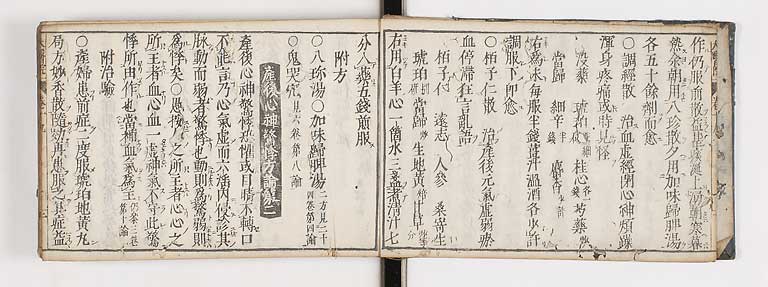 作仍服前散益甚痰涎上湧朝寒暮
熱余朝用八珍散夕用加味歸脾湯
各五十餘劑而愈
○調經散　治血虛經閉心神煩躁
渾身疼痛或時見怪
沒藥　琥珀　桂心各一錢　芍藥
當歸　細辛　麝香
右為末每服半錢薑汁溫酒各少許
調服下即愈
○栢子仁散　治產後元氣虛弱瘀
血停滯狂言亂語
栢子仁　遠志　人參　桑寄生
琥珀　當歸　生地黃　甘草
右用白羊心一箇水三盞煮清汁七
分入藥五錢煎服
附方
○八珍湯○加味歸脾湯二方見二十四卷第四論
○鬼哭咒見六卷第八論
產後心神驚悸方論第二
產後心神驚悸恐懼或目睛不轉口
不能言乃心氣虛而六淫內侵診其
脉動而弱者驚悸也動則為驚弱則
為悸矣○愚按人之所主者心心之
所主者血心血一虛神氣不守此驚
悸所由作也當補血氣為主仍參三卷第一論
附治驗
○產婦患前症二度服琥珀地黃丸
局方妙香散隨効再患服之其症益